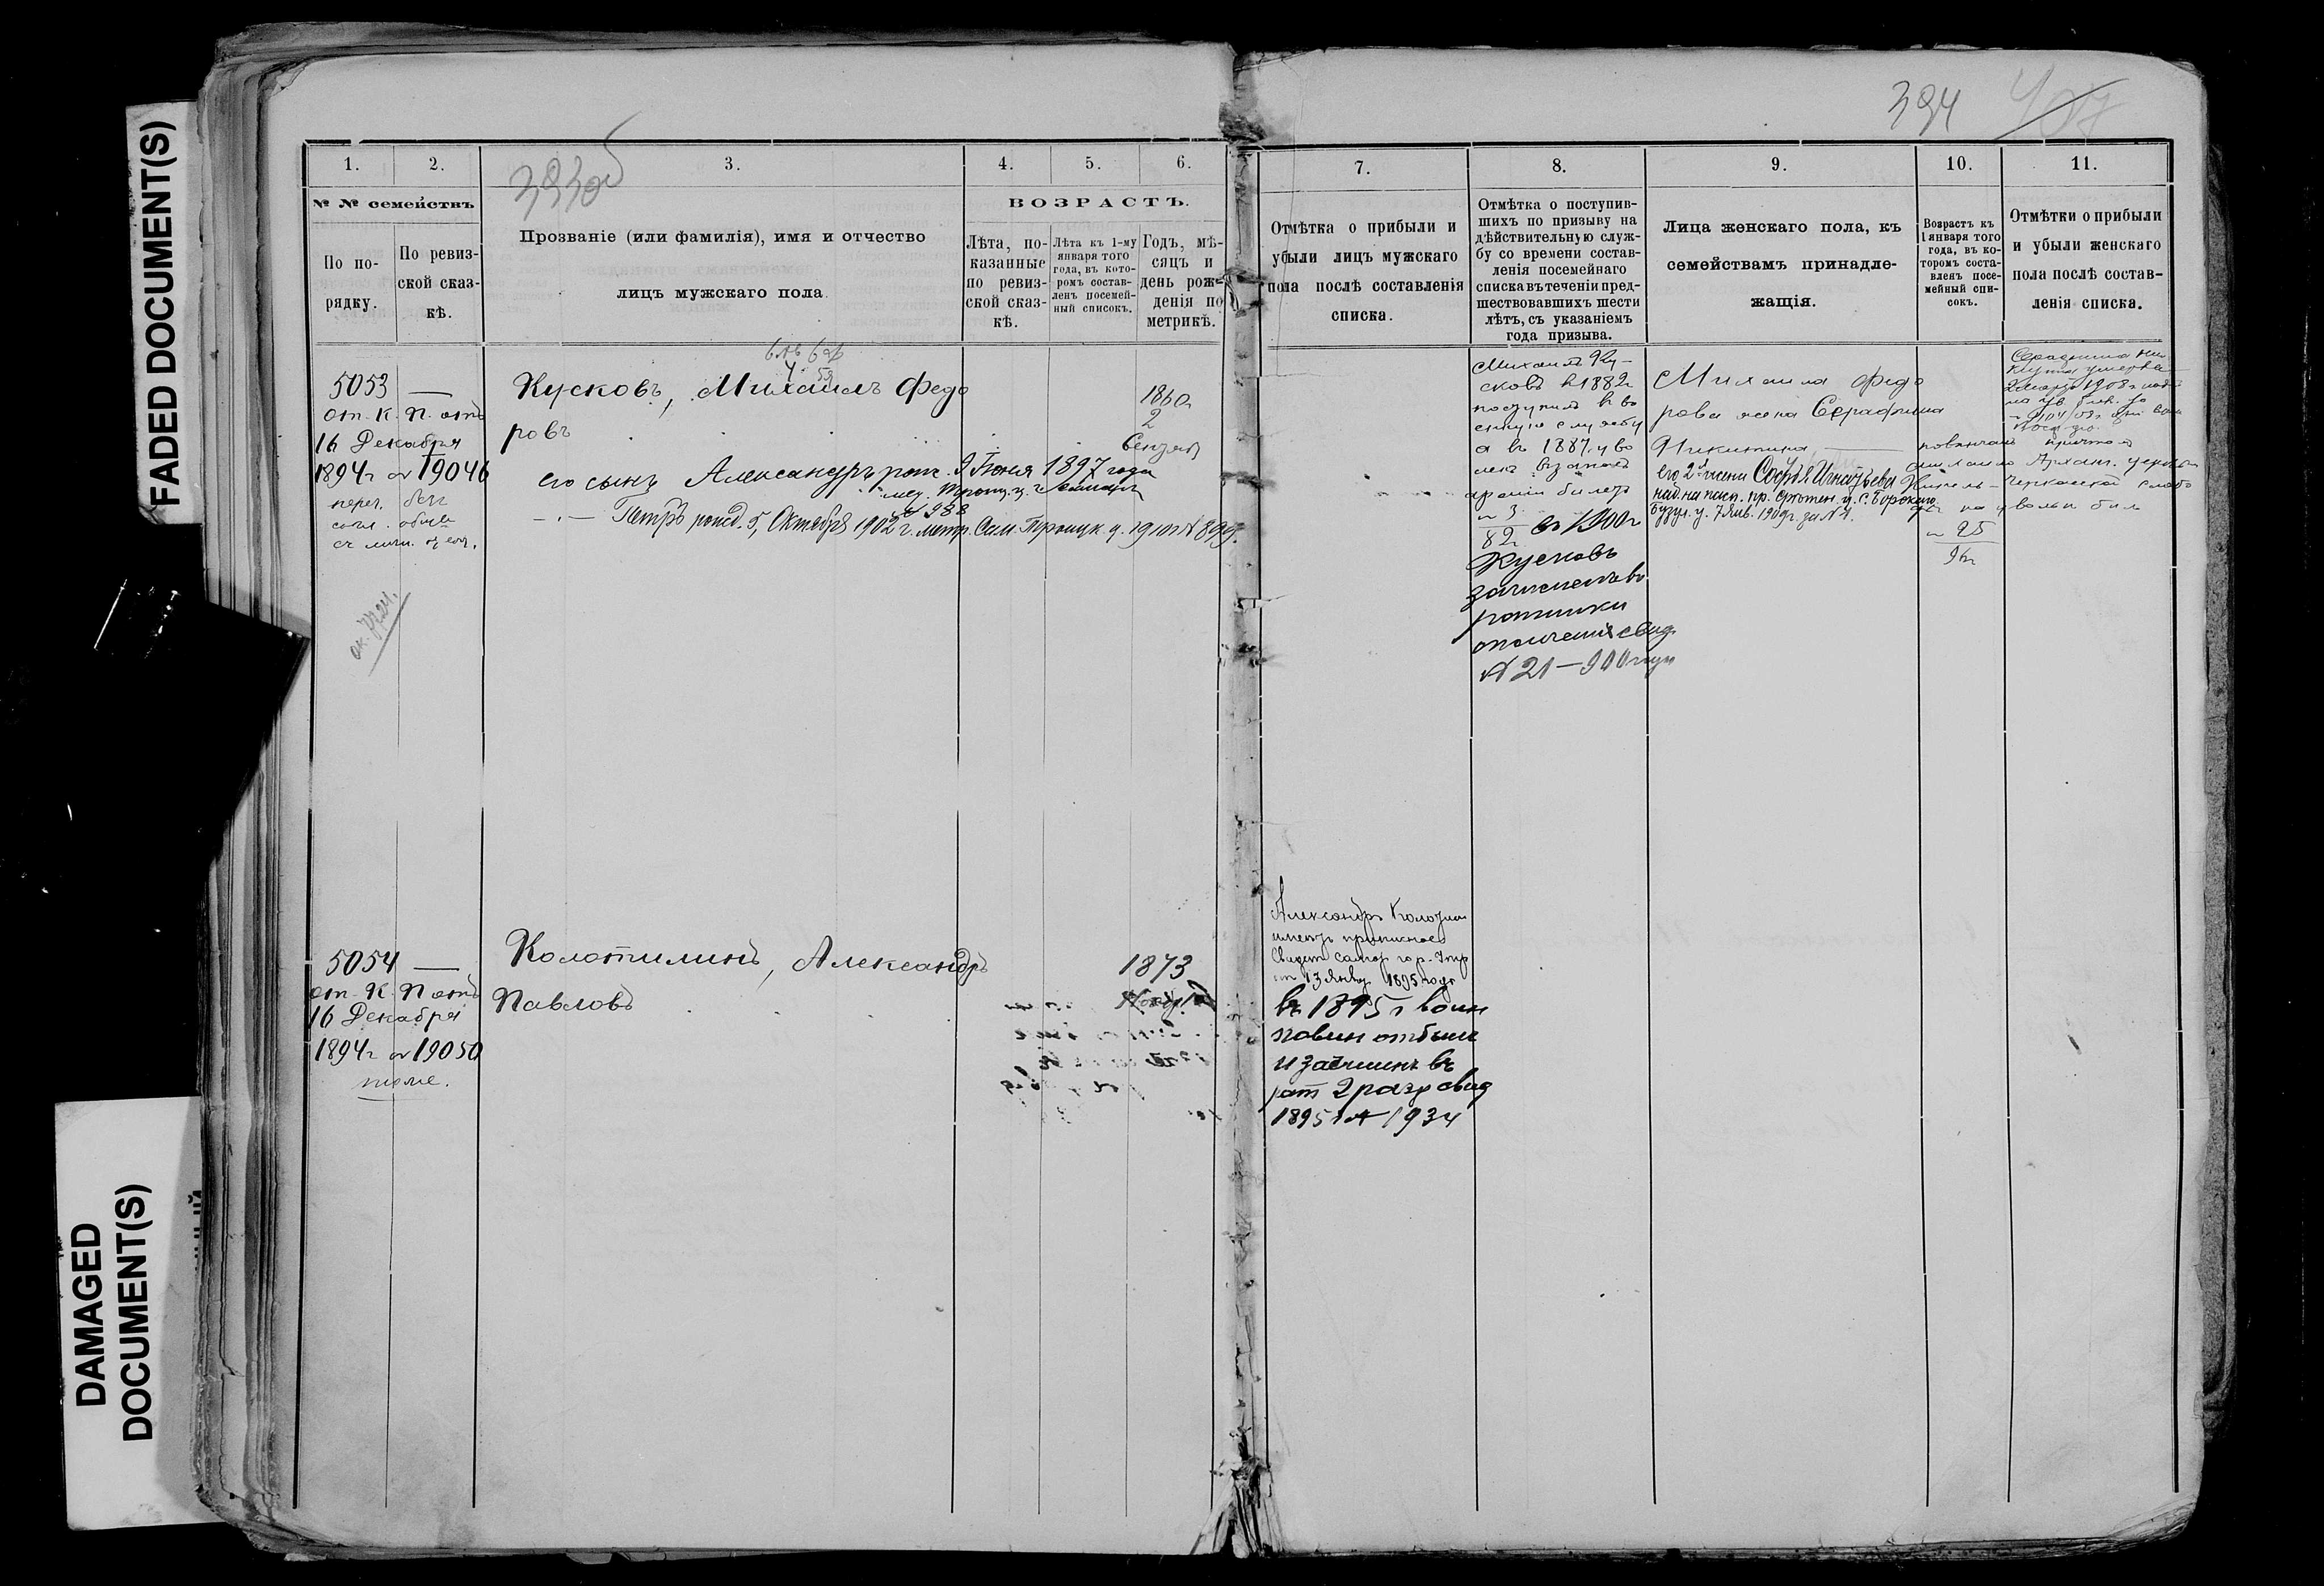 FADED DOCUMENT(S)
DAMAGED
DOCUMENT(S)
394
393об
1.
2.
3.
4.
5.
6.
№ № семействъ
По по-
рядку.
По ревиз-
ской сказ-
кѣ.
Прозваніе (или фамилія), имя и отчество
лицъ мужскаго пола.
ВОЗРАСТЪ.
Лѣта, по-
казанные
по ревиз-
ской сказ-
кѣ.
Лѣта къ 1-му
января того
года, въ кото-
ромъ состав-
ленъ посемей-
ный списокъ.
Годъ, мѣ-
сяцъ и
день рож-
денія по
метрикѣ.
7.
8.
9.
10.
11.
Отмѣтка о прибыли и
убыли лицъ мужскаго
пола послѣ составленія
списка.
Отмѣтка о поступив-
шихъ по призыву на
дѣйствительную служ-
бу со времени состав-
ленія посемейнаго
списка въ теченіи пред-
шествовавшихъ шести
лѣтъ, съ указаніемъ
года призыва.
Лица женскаго пола, къ
семействамъ принадле-
жащія.
Возрастъ къ
1 января того
года, въ ко-
торомъ соста-
вленъ посе-
мейный спи-
сокъ.
Отмѣтки о прибыли
и убыли женскаго
пола послѣ состав-
ленія списка.
5053 —
от. К. П. отъ
16 Декабря
1894г № 19046
Кусковъ, Михаилъ Федо
ровъ
1860г
2
его сынъ Александръ рож. 9 Іюня 1897 года
№ 988
Петръ рожд. 5, Октября 1902 г. метр. Сам. Троицк. ц. 1910 № 899.
Михаилъ Ку-
сковъ в 1882г
поступилъ въ во
енную службу
а въ 1887 г уво
ленъ въ запасъ
арміи билетъ
№ 3
82
въ 1900г
Кусковъ
зачисленъ въ
ратники
ополченія свид.
№ 21 — 900 года
Михаила Федо
рова жена Серафима
Никитина
его 2я жена Софья Игнатьева
Бузул. у. 7 Янв. 1909г за № 1.
№ 25
96г
5054 —
от. К. П отъ
16 Декабря
1894г № 19050
тоже.
Колотилинъ, Александръ
Павловъ
1873
Александръ
имеетъ приписное
13 Янв 1895 года
въ 1895 г воин
повин отбылъ
и зачисленъ въ
рат 2 разр свид
1895 г № 1934